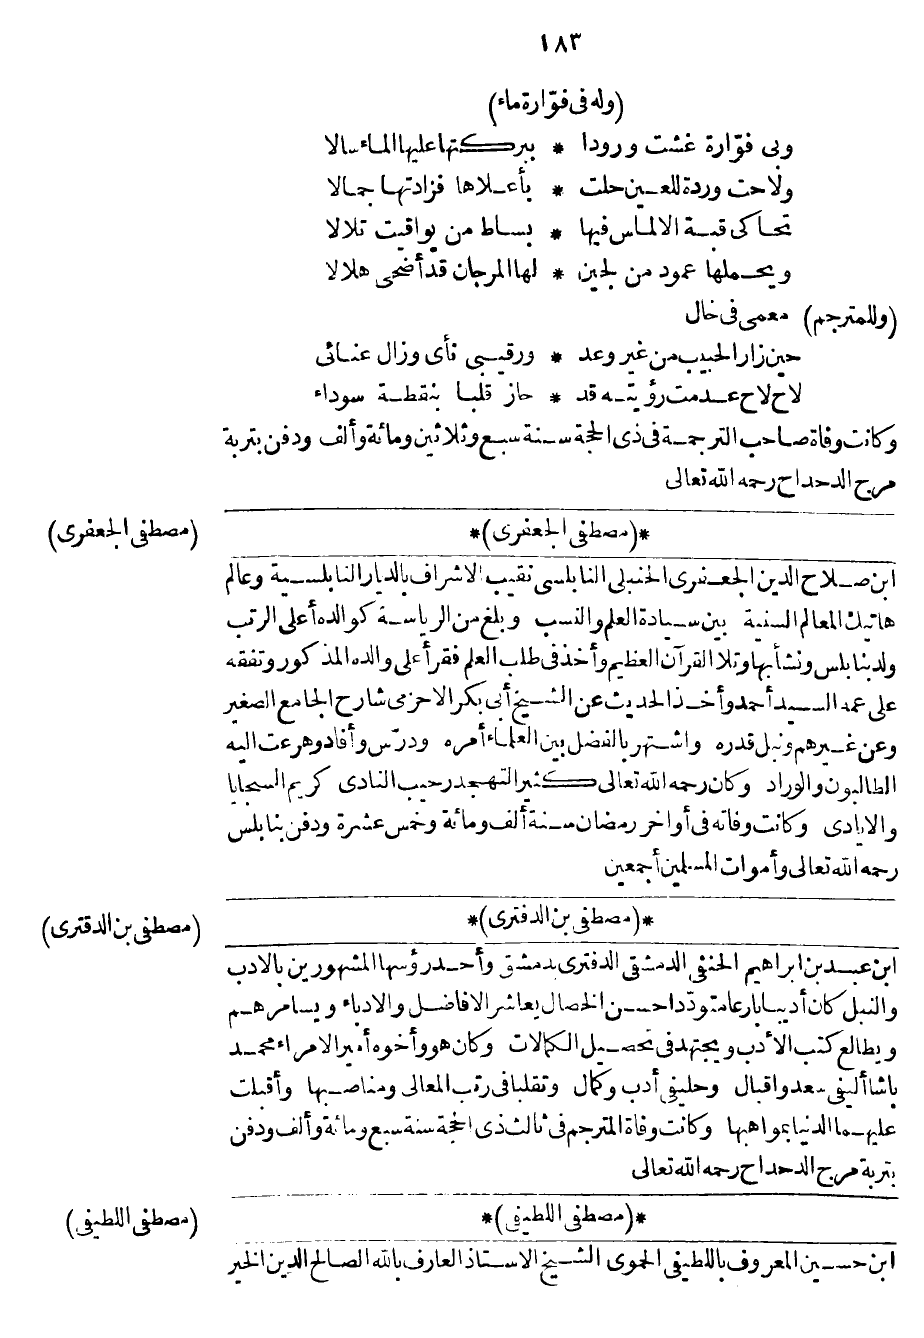 ١٨٣
(وله فى فوّارة ماء)
وبى فوّارة غشت ورودا * ببركتها عليها الماء سالا
ولاحت وردة للعين حلت * بأعلاها فزادتها جمالا
تحاكى قبة الالماس فيها * بساط من يواقيت تلالا
ويحملها عمود من لجين * لها المرجان قد أضحى هلالا
(وللمترجم) معمى فى خال
حين زار الحبيب من غير وعد * ورقيبى نأى وزال عنائى
لاح لاح عدمت رؤيته قد * حاز قلبا بنقطة سوداء
وكانت وفاة صاحب الترجمة فى ذى الحجة سنة سبع وثلاثين ومائة وألف ودفن بتربة
مرج الدحداح رحمه الله تعالى
*(مصطفى الجعفرى)*
(مصطفى الجعفرى)
ابن صلاح الدين الجعفرى الحنبلى النابلسى نقيب الاشراف بالديار النابلسية وعالم
هاتيك المعالم السنية بين سيادة العلم والنسب وبلغ من الرياسة كوالده أعلى الرتب
ولد بنابلس ونشأ بها وتلا القرآن العظيم وأخذ فى طلب العلم فقرأ على والده المذكور وتفقه
على عمه السيد أحمد وأخذ الحديث عن الشيخ أبى بكر الاحزمى شارح الجامع الصغير
وعن غيرهم ونبل قدره واشتهر بالفضل بين العلماء أمره ودرّس وأفاد وهرعت اليه
الطالبون والوراد وكان رحمه الله تعالى كثير التهجد رحيب النادى كريم السجايا
والايادى وكانت وفاته فى أواخر رمضان سنة ألف ومائة وخمس عشرة ودفن بنابلس
رحمه الله تعالى وأموات المسلمين أجمعين
*(مصطفى بن الدفترى)*
(مصطفى بن الدقترى)
ابن عبد بن ابراهيم الحنفى الدمشقى الدفترى بدمشق وأحد رؤسها المشهورين بالادب
والنبل كان أديبا بارعا متودّدا حسن الخصال يعاشر الافاضل والادباء ويسامرهم
ويطالع كتب الأدب ويجتهد فى تحصيل الكمالات وكان هو وأخوه أمير الامراء محمد
باشا أليفى سعد واقبال وحليفى أدب وكمال وتقلبا فى رتب المعالى ومناصبها وأقبلت
عليهما الدنيا بمواهبها وكانت وفاة المترجم فى ثالث ذى الحجة سنة سبع ومائة وألف ودفن
بتربة مرج الدحداح رحمه الله تعالى
*(مصطفى اللطيفى)*
(مصطفى اللطيفى)
ابن حسين المعروف باللطيفى الحموى الشيخ الاستاذ العارف بالله الصالح الدين الخير